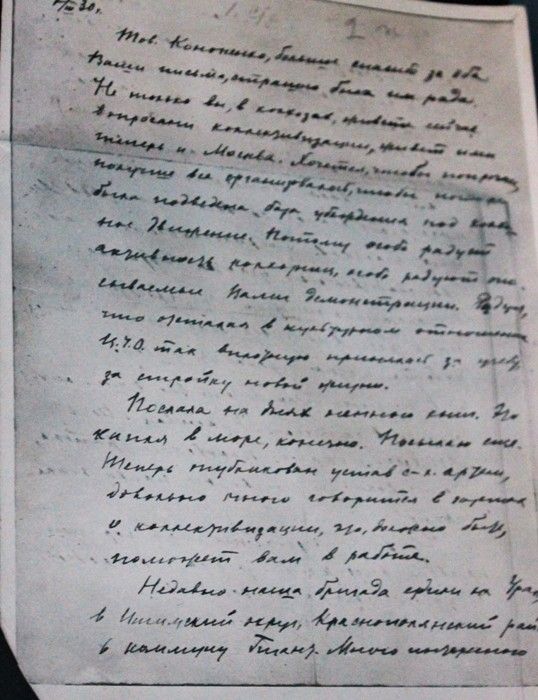 /III 30 г.
2
Тов. Кононенко, большое спасибо за оба
Ваши письма, страшно была им рада.
Не только вы, в колхозах, живете сейчас
вопросами коллективизации, живет ими
теперь и Москва. Хочется, чтобы попрочнее,
получше все организовалось, чтобы
была подведена база под
движение. Поэтому особо радует
активность, особо радуют
вами демонстрации.
что отсталая в культурном отношении
Ц.Ч.О. так вплотную принялась за
за стройку новой жизни.
Послала на днях немного книг. Это
капля в море, конечно. Посылаю еще.
Теперь опубликован устав с-х. артели,
довольно много говорится в
о коллективизации, это, может быть,
поможет вам в работе.
Недавно наша бригада ездила на Урал,
в Ишимский округ, Краснополянский рай
в коммуну Гигант. Много интересного